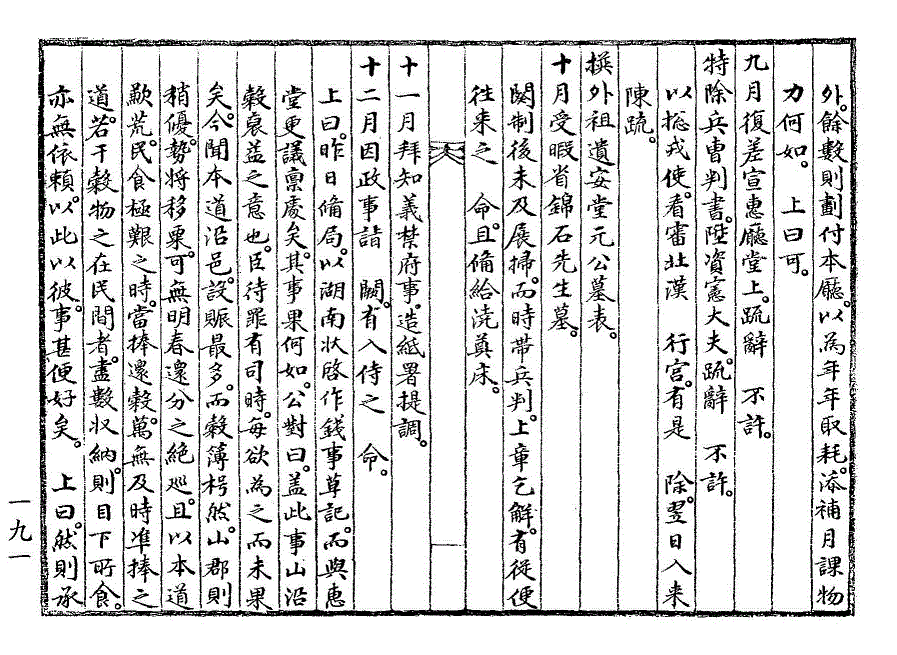 外。餘數則劃付本廳。以為年年取耗。添補月課物
力何如。 上曰可。
九月復差宣惠廳堂上。疏辭 不許。
特除兵曹判書。陞資憲大夫。疏辭 不許。
以摠戎使。看審北漢 行宮。有是 除。翌日入來
陳疏。
撰外祖遺安堂元公墓表。
十月受暇省錦石先生墓。
闋制後未及展掃。而時帶兵判。上章乞解。有從便
往來之 命。且備給澆奠床。
十一月拜知義禁府事。造紙署提調。
十二月因政事詣 闕。有入侍之 命。
上曰。昨日備局。以湖南狀啓作錢事草記。而與惠
堂更議稟處矣。其事果何如。公對曰。盖此事山沿
穀裒益之意也。臣待罪有司時。每欲為之而未果
矣。今聞本道沿邑。設賑最多。而穀簿枵然。山郡則
稍優。勢將移粟。可無明春還分之絶巡。且以本道
歉荒。民食極艱之時。當捧還穀。萬無及時准捧之
道。若干穀物之在民間者。盡數收納。則目下所食。
亦無依賴。以此以彼。事甚便好矣。 上曰。然則承
一九一